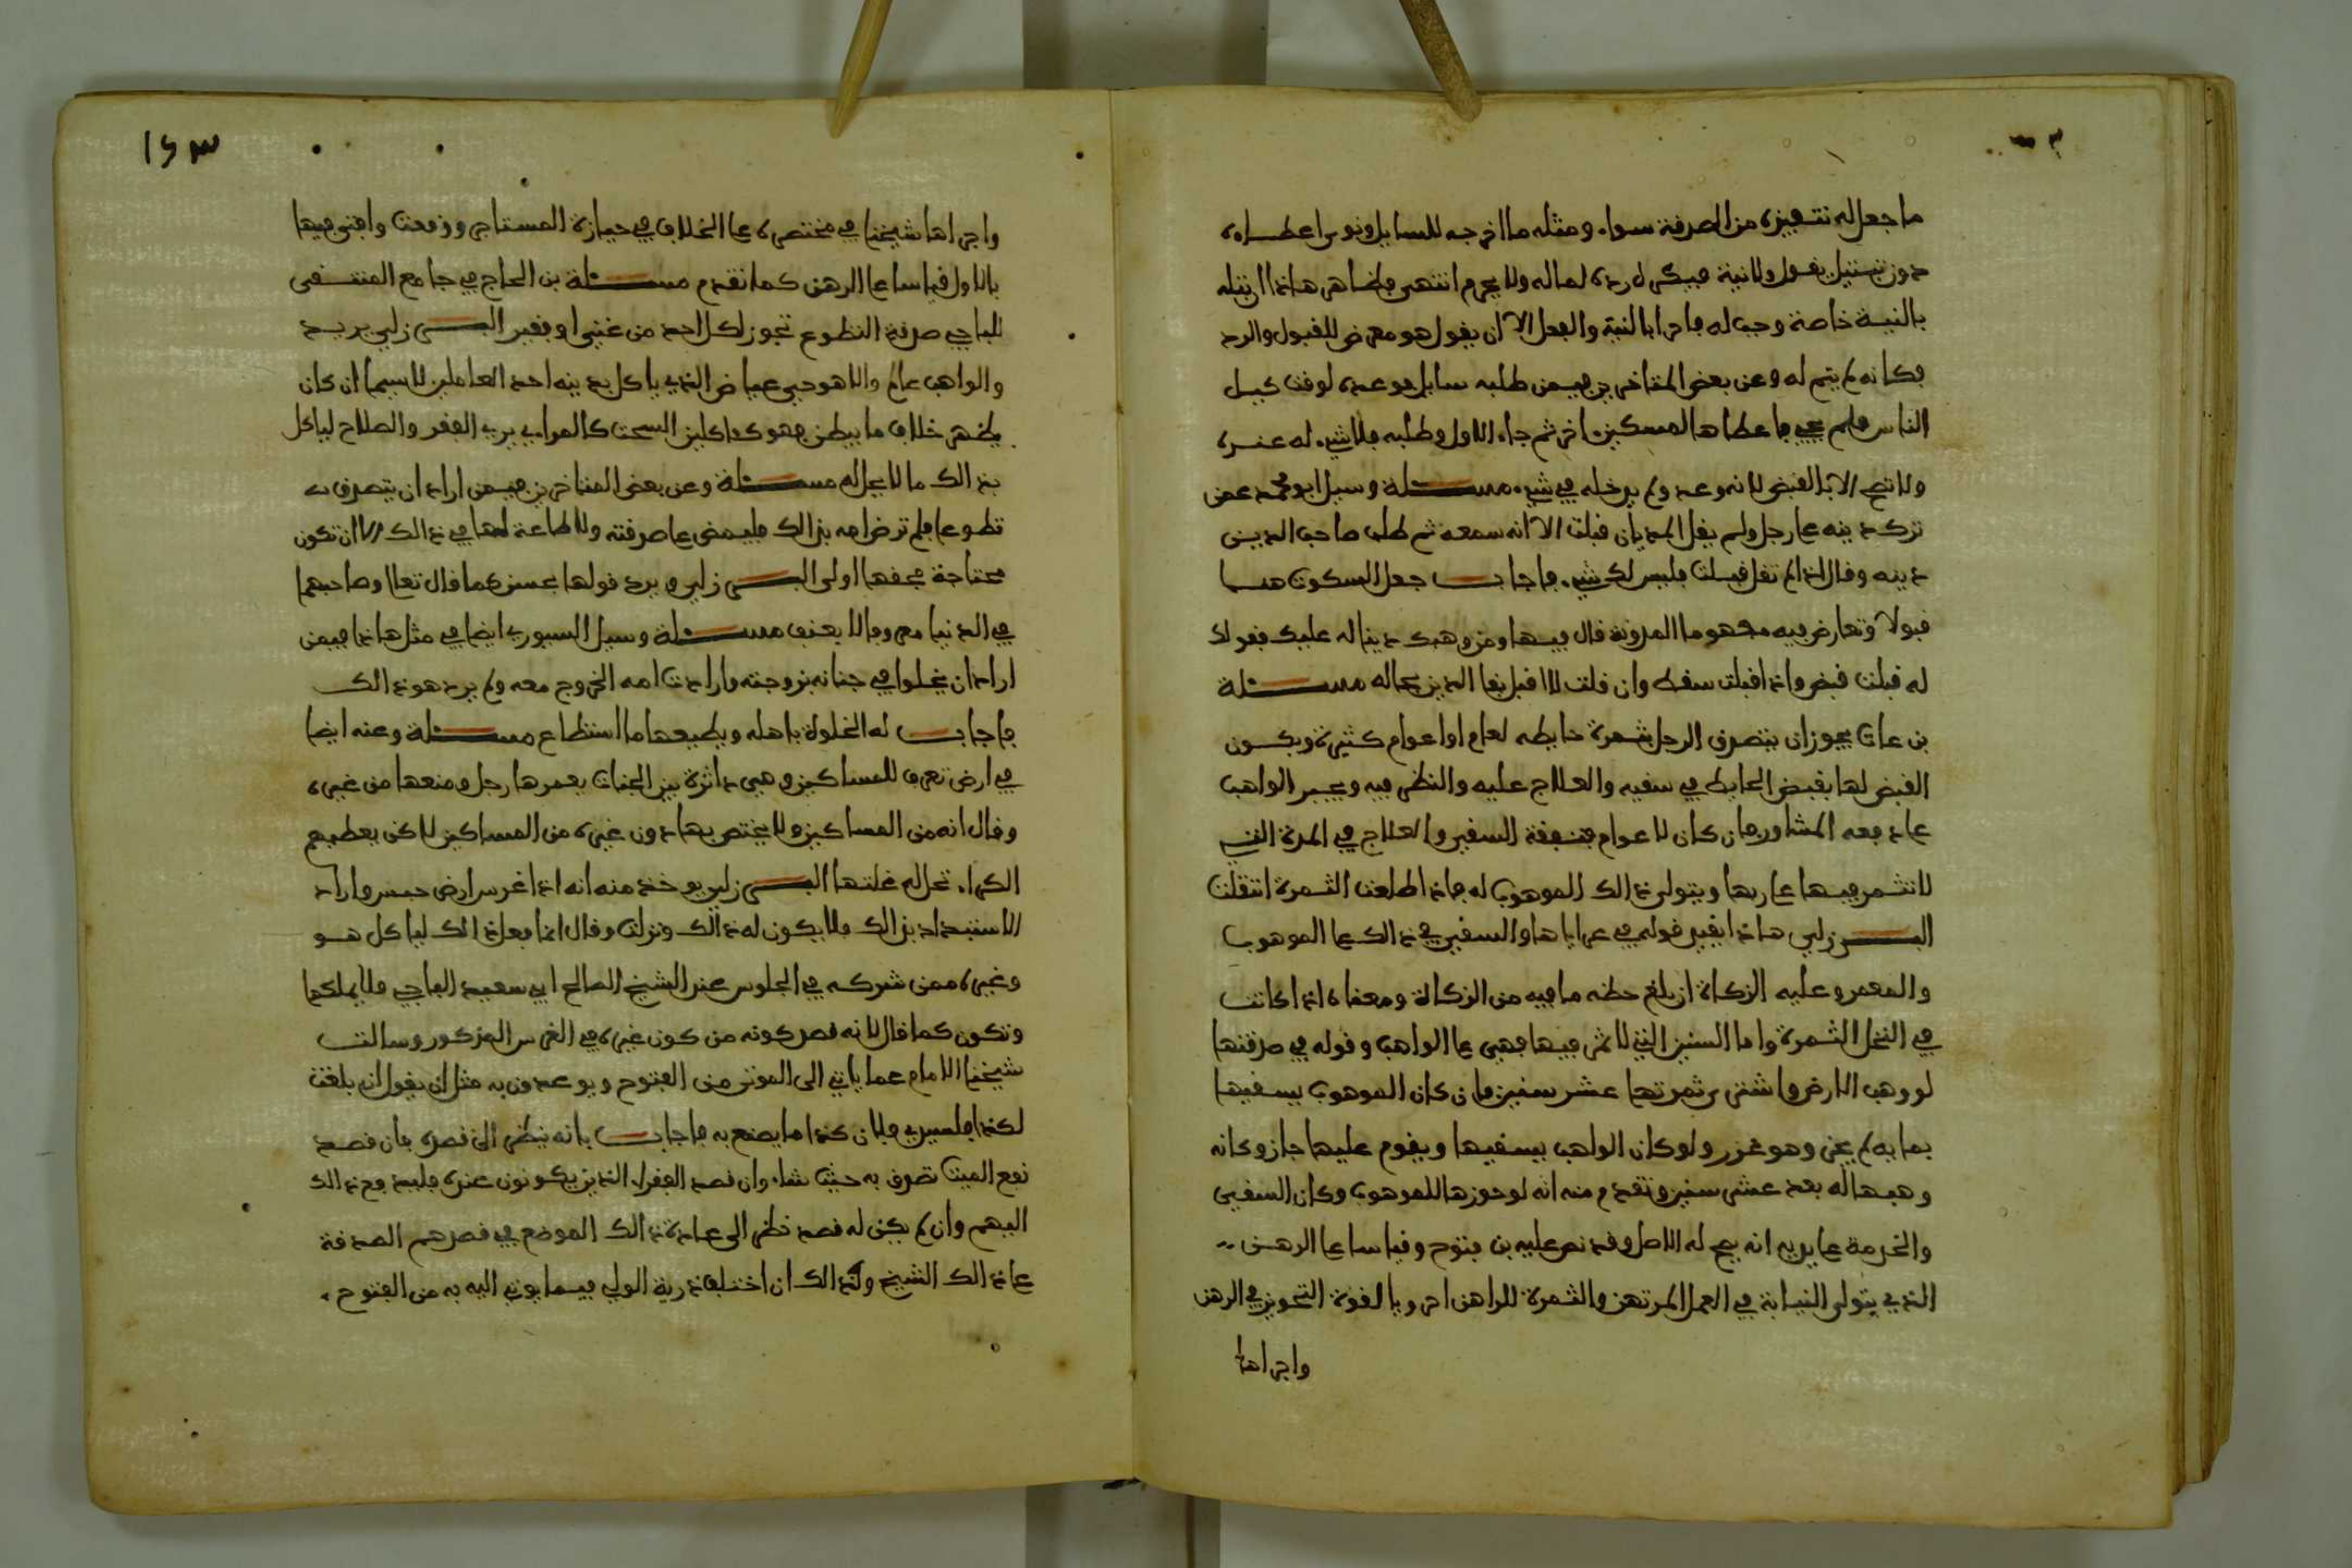 ما جعل له تنفيذه من الصدقة سواء ومثله ما اخرجه للسايل ونوى اعطاءه
دون تبتيل بقول ولا نية فيكره له رده لماله ولا يحرم انتهى فظاهر هاذا ان بتله
بالنية خاصة وجب له فاحرى بالنية والفعل الا ان يقول هو معرض للقبول والرد
فكانه لم يتم له وعن بعض المتاخرين فيمن طلبه سايل فوعده لوقت كيل
الناس فلم يجي فاعطاها لمسكين اخر ثم جاء الاول وطلبه فلا شيء له عنده
ولا تصح الا بالقبض لانه وعد ولم يدخله في شيء مسئلة وسيل ابو محمد عمن
ترك دينه على رجل ولم يقل المديان قبلت الا انه سمعه ثم طلب صاحب الدين
دينه وقال اذ لم تقل قبلت فليس لك شيء فاجاب جعل السكوت هنا
قبولا وتعارض فيه مفهوما المدونة قال فيها ومن وهبك دينا له عليك فقولك
له قبلت قبض واذا قبلت سقط وان قلت لا اقبل بقا الدين بحاله مسئلة
بن عات يجوز ان يتصدق الرجل بثمرة حايطه لعام او اعوام كثيرة ويكون
القبض لها بقبض الحايط في سقيه والعلاج عليه والنظر فيه ويجبر الواهب
على دفعه المشاور فان كان لاعوام فنفقة السقي والعلاج في المدة التي
لا تثمر فيها على ربها ويتولى ذالك الموهوب له فاذا اطلعت الثمرة انتقلت
البرزلي هاذا يقيد قولي في عراياها والسقي في ذالك على الموهوب
والمعمر وعليه الزكاة ان بلغ حظه ما فيه من الزكاة ومعناه اذا كانت
في النخل الثمرة واما السنين التي لا ثمر فيها فهي على الواهب وقوله في صدقتها
لو وهب الارض واشترى ثمرتها عشر سنين فان كان الموهوب يسقيها
بمايه لم يجز وهو غرر ولو كان الواهب يسقيها ويقوم عليها جاز وكانه
وهبها له بعد عشر سنين وتقدم منه انه لو حوزها للموهوب وكان السقي
والخدمة على يديه انه يصح له الاصل وقد نص عليه بن فتوح وقياسا على الرهن
الذي يتولى النيابة في العمل المرتهن والثمرة للراهن احرويا لقوة التحويز في الرهن
واجراها
١٤٣
واجراها شيخنا في مختصره على الخلاف في حيازة المستاجر ووقعت وافتى فيها
بالاول قياسا على الرهن كما تقدم مسئلة بن الحاج في جامع المنتقى
للباجي صدقة التطوع تجوز لكل احد من غني او فقير البرزلي يريد
والواهب عالم والا هو حي عياض الذي ياكل بدينه احد العاملين لاسيما ان كان
يظهر خلاف ما يبطن فهو كاكلين السحت كالمرابي يريه الفقر والصلاح لياكل
بذالك ما لا يحل له مسئلة وعن بعض المتاخرين فيمن اراد ان يتصدق
تطوعا فلم ترض امه بذالك فليمض على صدقته ولا طاعة لها في ذالك الا ان تكون
محتاجة فحقها اولى البرزلي ويرد قولها بحسنى كما قال تعالى وصاحبهما
في الدنيا معروفا لا بعنف مسئلة وسيل السيوري ايضا في مثل هاذا فيمن
اراد ان يخلوا في جنانه بزوجته وارادت امه الخروج معه ولم يرد هو ذالك
فاجاب له الخلوة باهله ويطيعها ما استطاع مسئلة وعنه ايضا
في ارض تعرف للمساكين وهي داثرة بين الجنات يعمرها رجل ومنعها من غيره
وقال انه من المساكين ولا يختص بها دون غيره من المساكين لاكن يعطيهم
الكراء تحل له غلتها البرزلي يوخذ منه انه اذا غرس ارض حبس واراد
الاستبداد بذالك فلا يكون له ذالك ونزلت وقال انما فعل ذالك لياكل هو
وغيره ممن شركه في الجلوس عند الشيخ الصالح ابي سعيد الباجي فلا يملكها
وتكون كما قال لانه قصد كونه من كون غيره في الغرس المذكور وسالت
شيخنا الامام عما ياتي الى الموتى من الفتوح ويوعدون به مثل ان يقول ان بلغت
لكذا فلسيدي فلان كذا ما يصنع به فاجاب بانه ينظر الى قصده فان قصد
نفع الميت تصدق به حيث شاء وان قصد الفقراء الذين يكونون عنده فليدفع ذالك
اليهم وان لم يكن له قصد نظر الى عادة ذالك الموضع في قصدهم الصدقة
على ذالك الشيخ وكذالك ان اختلف ذرية الولي فيما يوتى اليه به من الفتوح